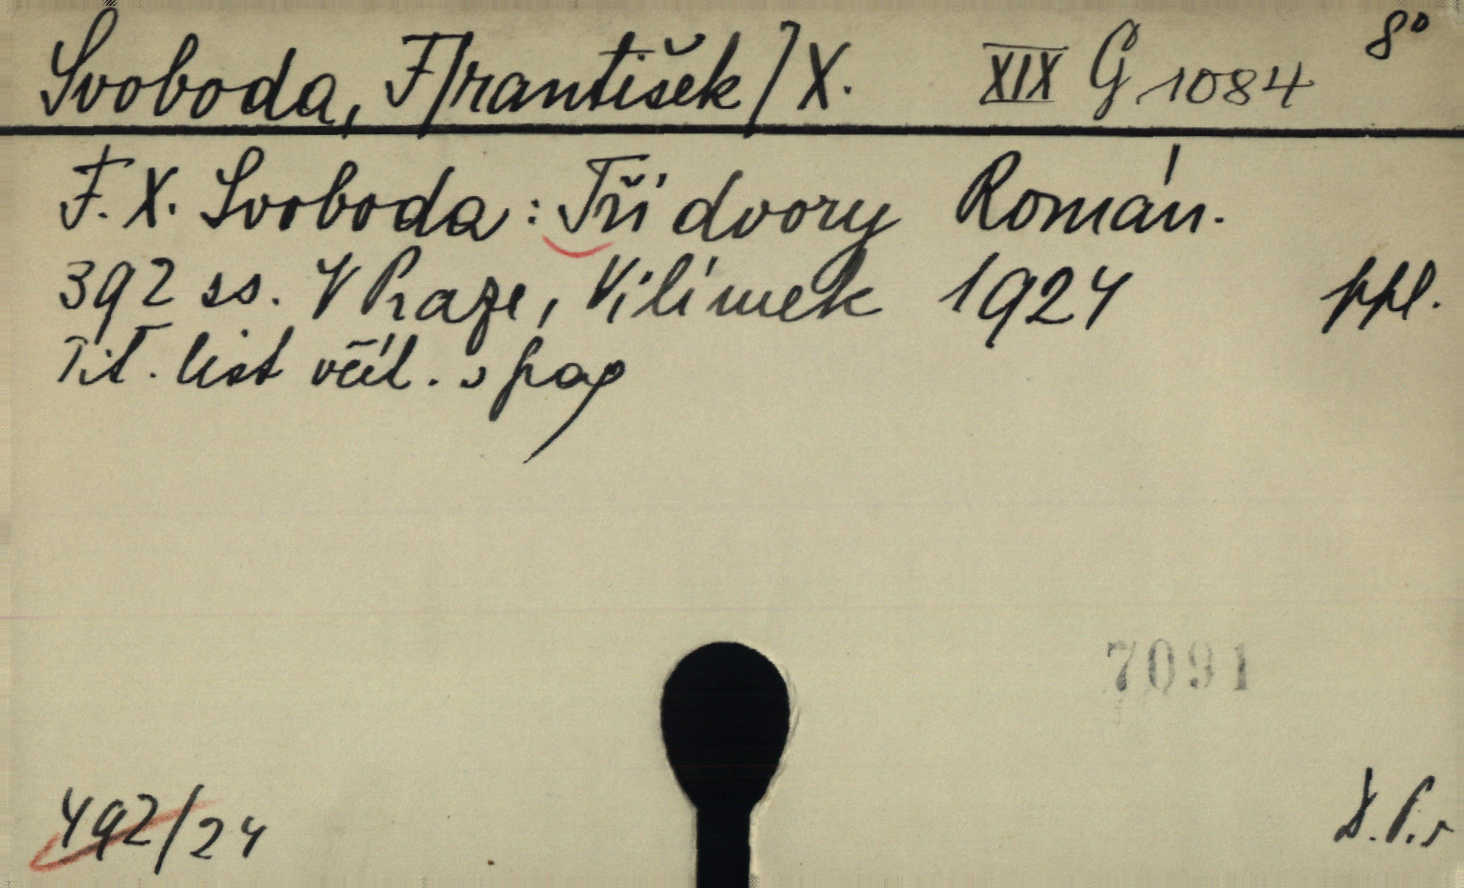 Svoboda, F[rantišek] X. XIX G 1084 8°
F. X. Svoboda: Tři dvory Román.
392 ss. V Praze, Vilímek 1924 ppl.
Tit. list včít. s pag
7091
492/24